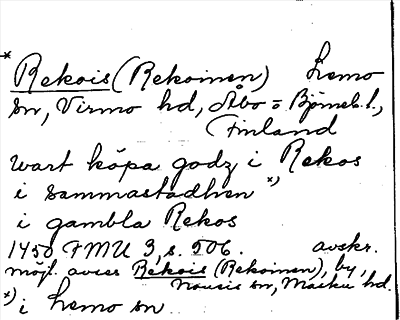 *
Rekois (Rekoinen) Lemo
sn, Virmo hd, Åbo o Björneb. l.,
Finland
wart köpa godz i Rekos
i sammastadhen *)
i gambla Rekos
1450 FMU 3, s. 506. avskr.
möjl. avses Rekois (Rekoinen), by,
Nousis sn, Masku hd.
*) i Lemo sn